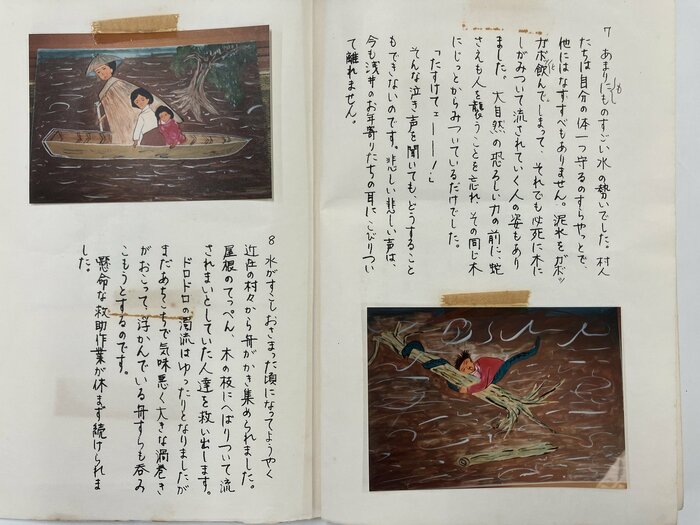 7 あまりにものすごい水の勢いでした。村人
たちは自分の体一つ守るのすらやっとで、
他にはなすすべもありません。泥水をガボッ
ガボ飲んでしまって、それでも必死に木に
しがみついて流されていく人の姿もあり
ました。大自然の恐ろしい力の前に、蛇
さえも人を襲うことを忘れ、その同じ木
にじっとからみついているだけでした。
「たすけてェーー!」
そんな泣き声を聞いても、どうすること
もできないのです。悲しい悲しい声は、
今も浅井のお年寄りたちの耳にこびりつい
て離れません。
8 水がすこしおさまった頃になってようやく
近在の村々から舟がかき集められました。
屋根のてっぺん、木の枝にへばりついて流
されまいとしていた人達を救い出します。
ドロドロの濁流はゆったりとなりましたが
まだあちこちで気味悪く大きな渦巻き
がおこって、浮かんでいる舟すらも呑み
こもうとするのです。
懸命な救助作業が休まず続けられま
した。